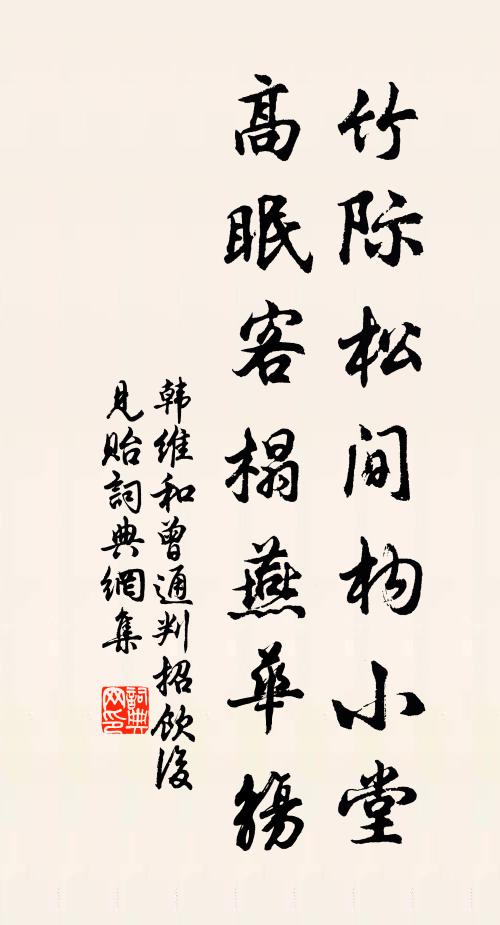 竹际松间构小堂
高眠客榻燕華觴
韩维和曾通判招饮後
見贻詞典網集
詞典网印